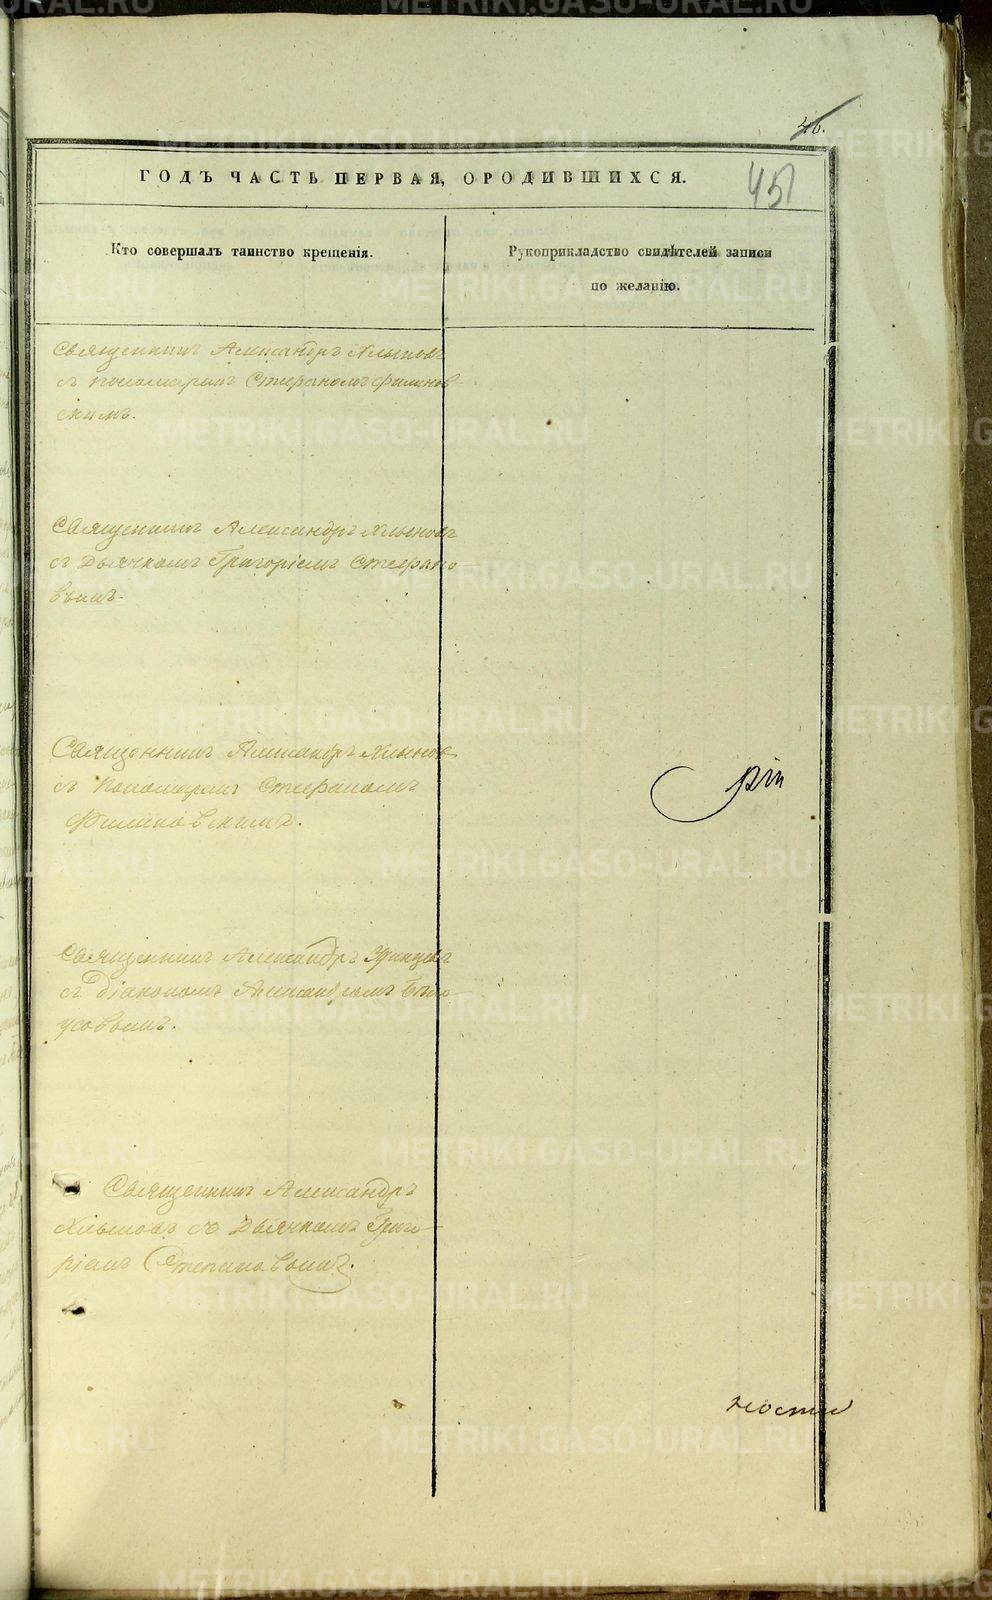 46.
ГОДЪ ЧАСТЬ ПЕРВАЯ, О РОДИВШИХСЯ.
451
Кто совершалъ таинство крещенія.
Рукоприкладство свидѣтелей записи
по желанію.
Священникъ Александръ Хлыновъ
съ пономаремъ Стефаномъ Филинов-
скимъ.
Священникъ Александръ Хлыновъ
съ Дьячкомъ Григоріемъ Стефано-
вымъ.
Священникъ Александръ Хлыновъ
съ Пономаремъ Стефаномъ
Филиновскимъ.
Священникъ Александръ
съ Діакономъ Александромъ Бѣло-
усовымъ.
Священникъ Александръ
Хлыновъ съ Дьячкомъ Григо-
ріемъ Степановымъ.
рій
ности
METRIKI.GASO-URAL.RU